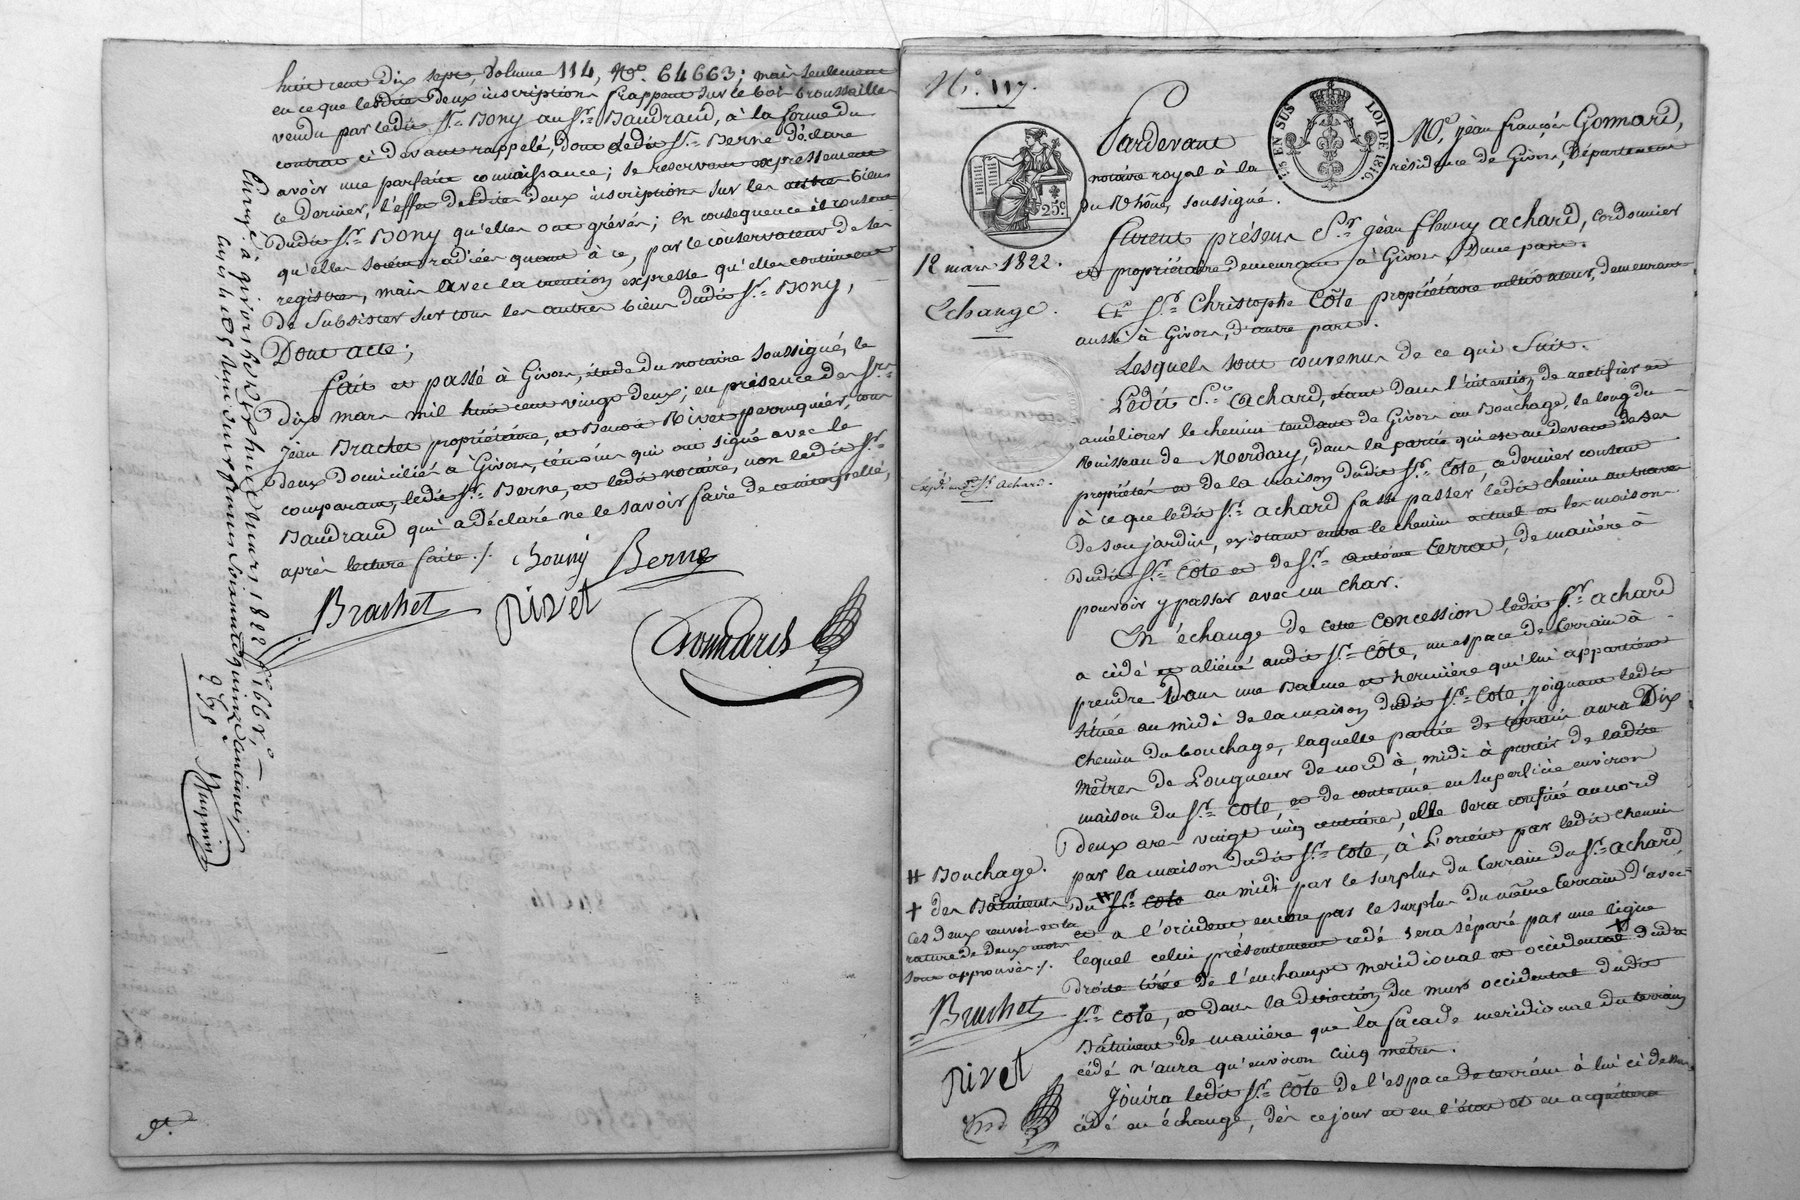 huit cent dix sept, volume 114, N.º 64663; mais seulement
en ce que lesdites deux inscriptions frappent sur le bois broussailles
vendu par ledit S.r Bony au S.r Baudrand, à la forme du
contrat ci devant rappelé, dont ledit S.r Berne déclare
avoir une parfaite connaissance; se reservant expressement
ce dernier, l'effet desdites deux inscriptions sur les autres biens
dudit S.r Bony qu'elles ont grévés; en conséquence il consent
qu'elles soient radiées quant à ce, par le conservateur de ses
registres, mais avec la mention expresse qu'elles continuent
de subsister sur tous les autres biens dudit S.r Bony,
Dont acte;
fait et passé à Givors, étude du notaire soussigné, le
dix mars mil huit cent vingt deux; en présence des S.rs
Jean Brachet propriétaire, et Benoit Rivet perruquier, tous
deux domiciliés à Givors, témoins qui ont signé avec le
comparant, ledit S.r Berne, et ledit notaire, non ledit S.r
Baudrand qui a déclaré ne le savoir faire de ce interpellé,
après lecture faite ./.
Berne
Brachet
Rivet
Gonnard
à givors le dix huit mars 1822
N.º 117.
12 mars 1822.
Echange.
25.c
EN SUS LOI DE 1816.
Pardevant M.e jean françois Gonnard,
notaire royal à la résidence de Givors, Département
du Rhône, soussigné.
furent présens S.r jean fleury achard, cordonnier
et propriétaire demeurant à Givors, d'une part.
Et S.r Christophe Côte propriétaire cultivateur, demeurant
aussi à Givors, d'autre part.
Lesquels sont convenus de ce qui suit.
Ledit S.r achard, étant dans l'intention de rectifier et
améliorer le chemin tendant de Givors au Bouchage, le long du
Ruisseau de Merdary, dans la partie qui est au devant de ses
propriétés et de la maison dudit S.r Côte, ce dernier consent
à ce que ledit S.r achard fasse passer ledit chemin au travers
de son jardin, existant entre le chemin actuel et les maisons
dudit S.r Côte et de S.r antoine terrat, de manière à
pouvoir y passer avec un char.
En échange de cette concession ledit S.r achard
a cédé et aliéné audit S.r Côte, un espace de terrain à
prendre dans une Balme et herniére qui lui appartient
située au midi de la maison dudit S.r Côte, joignant ledit
chemin du bouchage, laquelle partie de terrain aura Dix
mètres de Longueur de nord à midi à partir de ladite
maison du S.r Côte, et de contenue en superficie environ
deux ares vingt cinq centiares, elle sera confiné au nord
par la maison dudit S.r Côte, à L'orient par ledit chemin
du # S.r Côte au midi par le surplus du terrain du S.r achard
et à l'occident encore par le surplus du même terrain d'avec
lequel celui présentement cédé sera séparé par une ligne
droite tirée de l'enchampt meridional et occidental + dudit
S.r Côte, et dans la direction du mur occidental dudit
Bâtiment de manière que la façade meridionale du terrain
cédé n'aura qu'environ cinq mètres.
Jouira ledit S.r Côte de l'espace de terrain à lui ci dessus
cédé en échange, dès ce jour et en l'état et en acquittera
# Bouchage.
+ des Bâtiments
Ces deux renvois et la
rature de deux mots
sont approuvés ./.
Brachet
Rivet